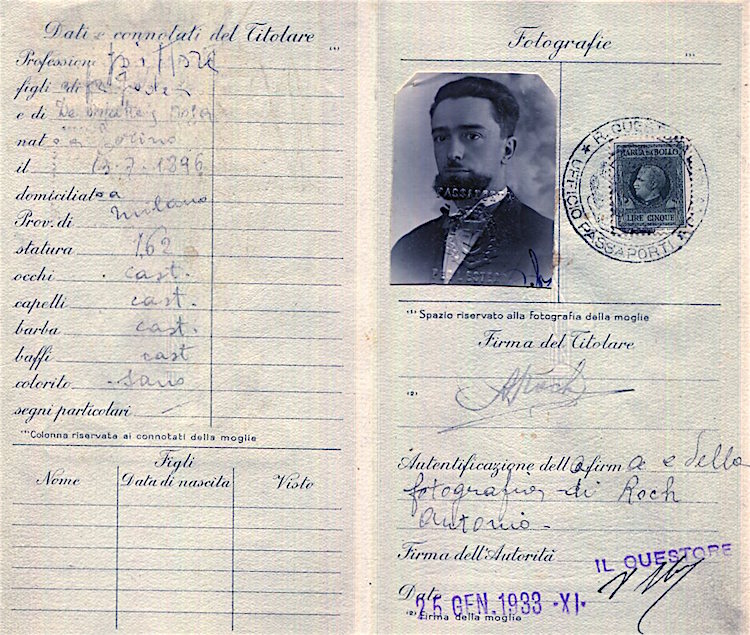 Dati e connotati del Titolare
(1)
Professione pittore
figli di
e di De
nato a Torino
il 13.7.1896
domiciliato a
Prov. di Milano
statura 1,62
occhi cast.
capelli cast.
barba cast.
baffi cast
colorito sano
segni particolari —
(1) Colonna riservata ai connotati della moglie
Figli
Nome Data di nascita Visto
Fotografie
(1)
PASSAPORTI
R. QUESTURA
UFFICIO PASSAPORTI
MARCA DA BOLLO
LIRE CINQUE
(1) Spazio riservato alla fotografia della moglie
Firma del Titolare
(2) ARoch
Autentificazione della firma e della
fotografia di Roch
Antonio -
Firma dell'Autorità
IL QUESTORE
Data 25 GEN. 1933 · XI ·
(2) Firma della moglie